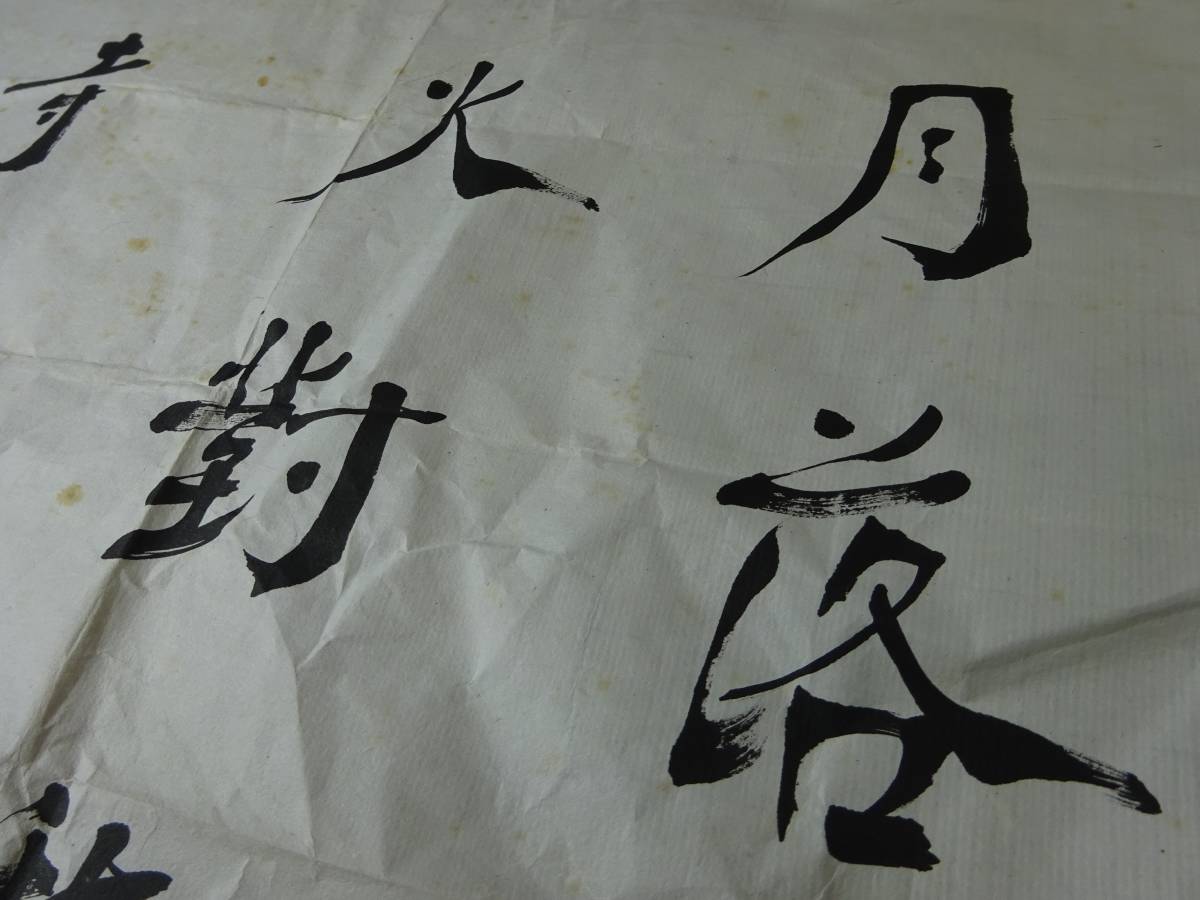 月落
火對
寺